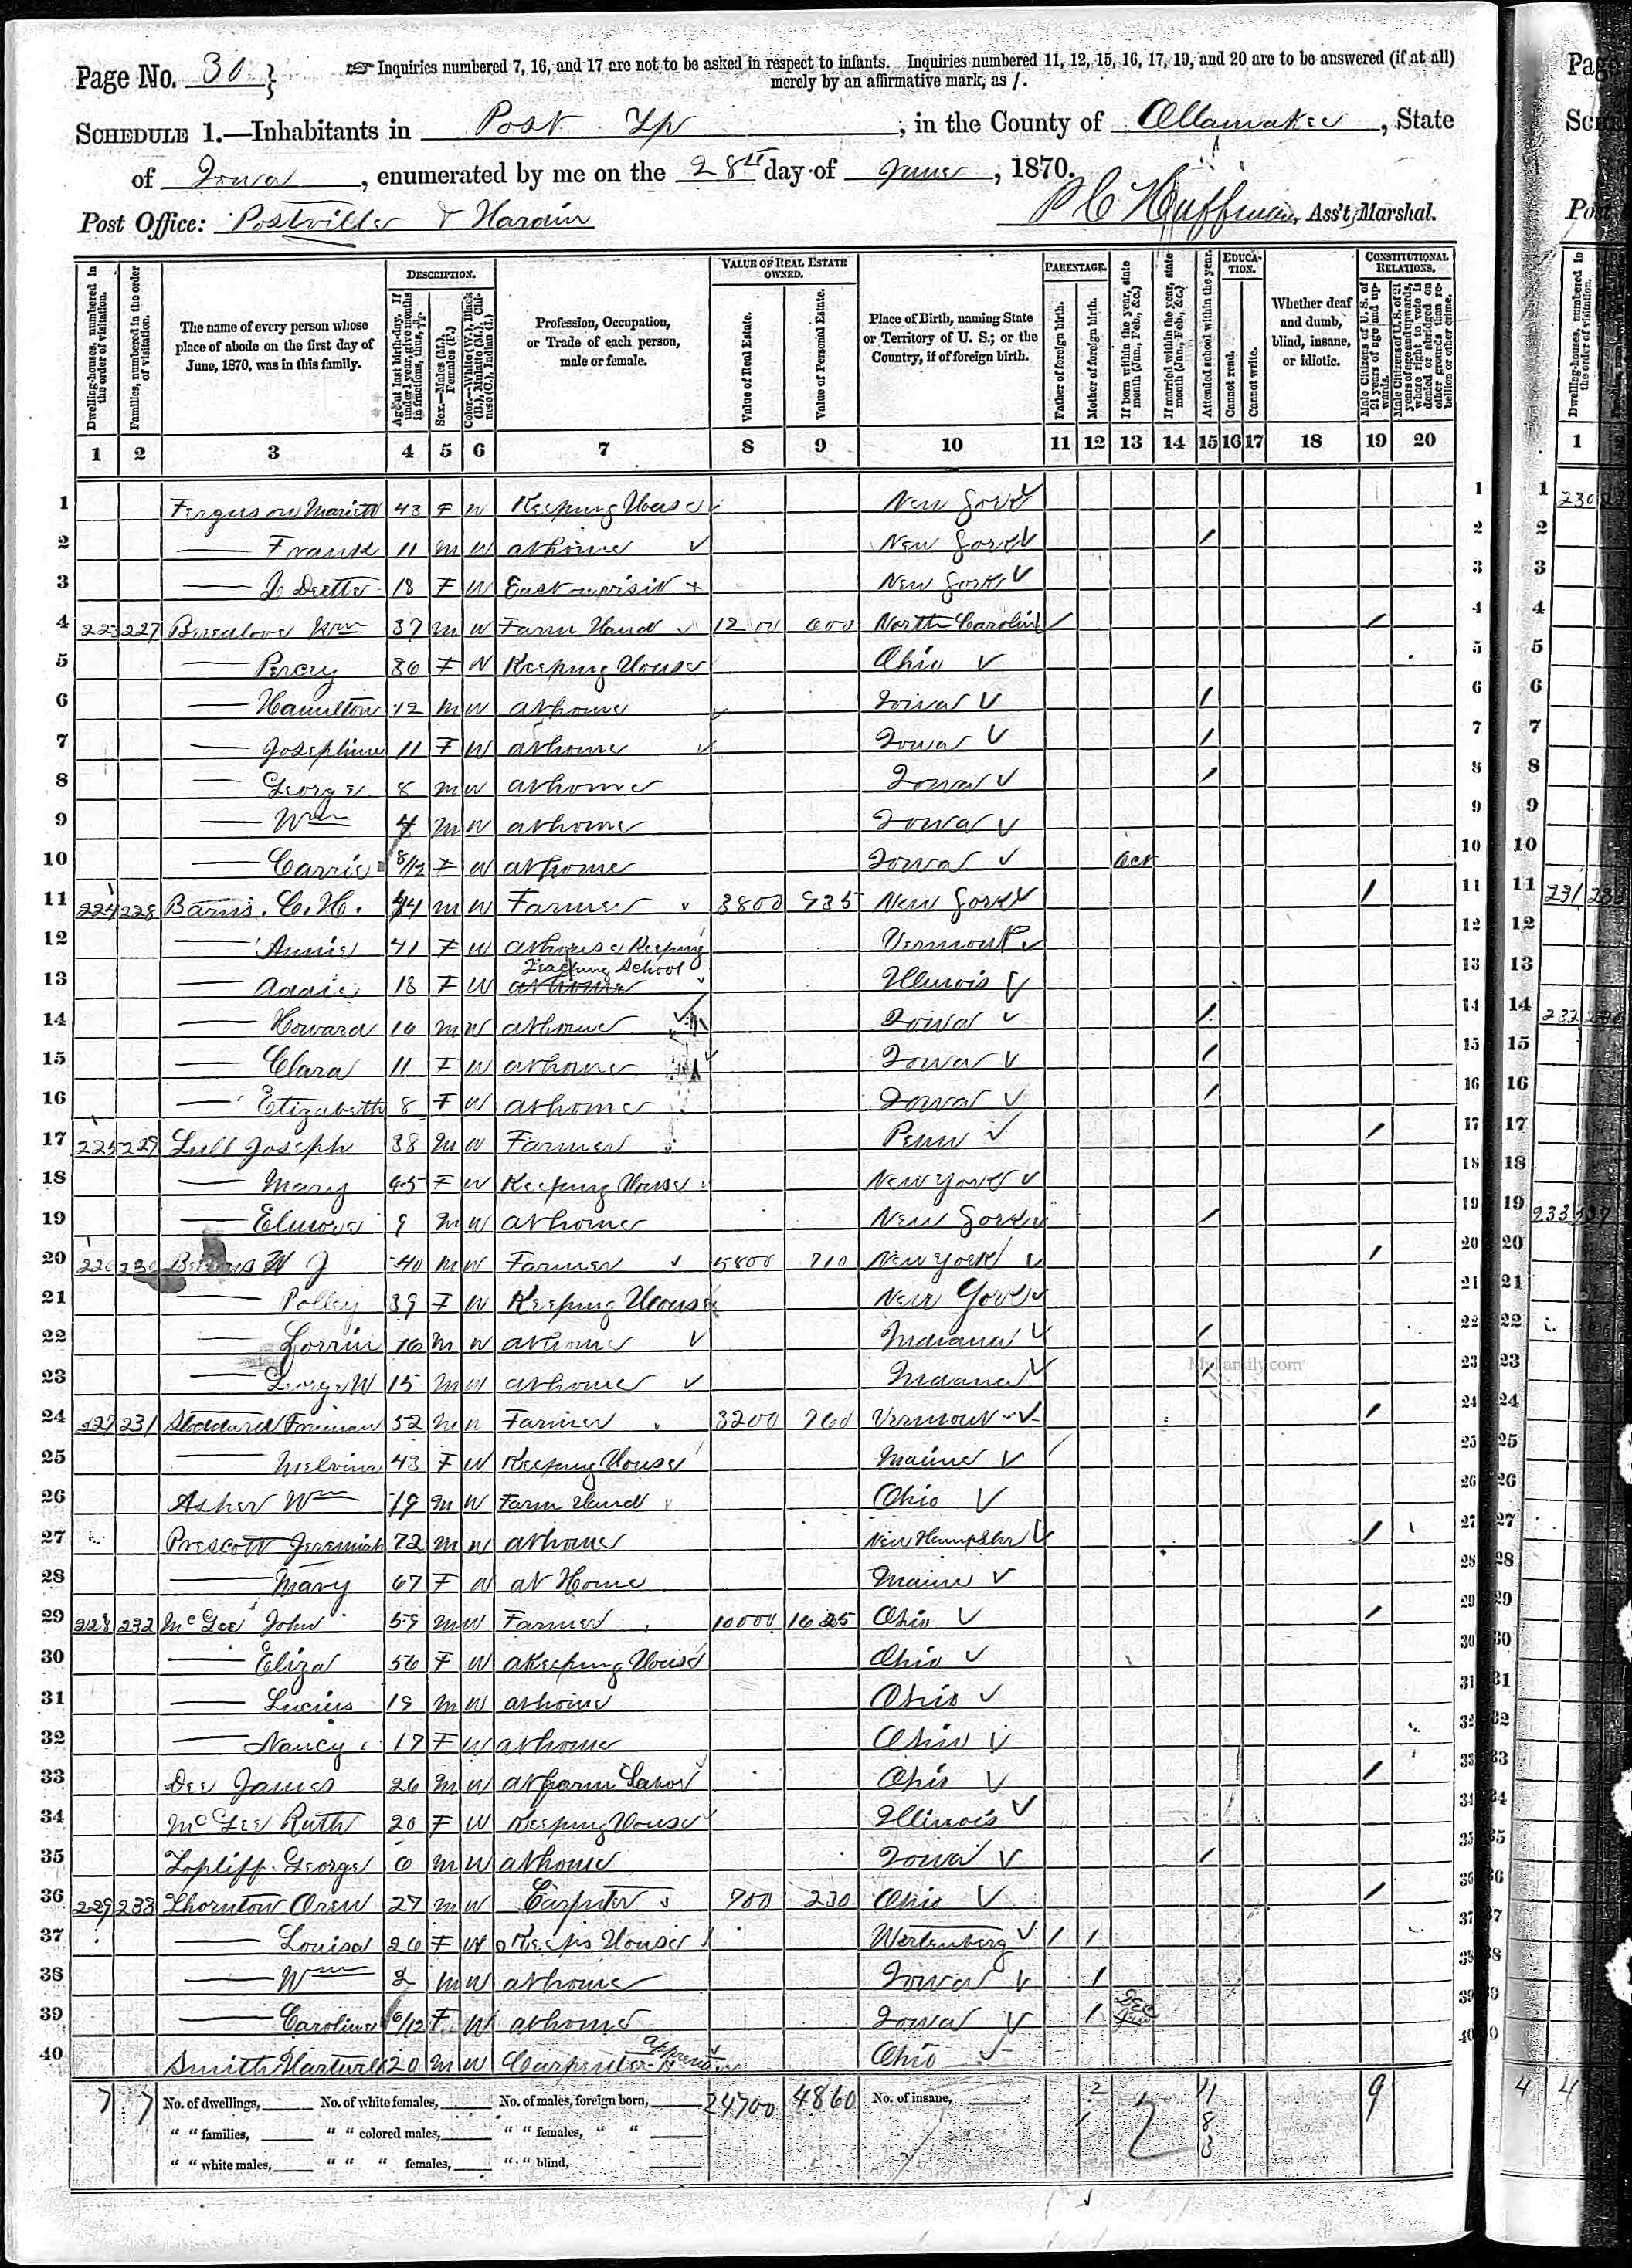 Page No. 30 } Inquiries numbered 7, 16, and 17 are not to be asked in respect to infants. Inquiries numbered 11, 12, 15, 16, 17, 19, and 20 are to be answered (if at all)
merely by an affirmative mark, as /.
SCHEDULE 1.—Inhabitants in Post Tp, in the County of Allamakee, State
of Iowa, enumerated by me on the 28th day of June, 1870.
Post Office: Postville & Hardin
P C Huffman, Ass't Marshal.
Dwelling-houses, numbered in the order of visitation.
Families, numbered in the order of visitation.
The name of every person whose place of abode on the first day of June, 1870, was in this family.
DESCRIPTION.
Age at last birth-day. If under 1 year, give months in fractions, thus, 3/12.
Sex.—Males (M.), Females (F.)
Color.—White (W.), Black (B.), Mulatto (M.), Chinese (C.), Indian (I.)
Profession, Occupation, or Trade of each person, male or female.
VALUE OF REAL ESTATE OWNED.
Value of Real Estate.
Value of Personal Estate.
Place of Birth, naming State or Territory of U. S.; or the Country, if of foreign birth.
PARENTAGE.
Father of foreign birth.
Mother of foreign birth.
If born within the year, state month (Jan., Feb., &c.)
If married within the year, state month (Jan., Feb., &c.)
Attended school within the year.
EDUCATION.
Cannot read.
Cannot write.
Whether deaf and dumb, blind, insane, or idiotic.
CONSTITUTIONAL RELATIONS.
Male Citizens of U. S. of 21 years of age and upwards.
Male Citizens of U. S. of 21 years of age and upwards, where right to vote is denied or abridged on other grounds than rebellion or other crime.
1 2 3 4 5 6 7 8 9 10 11 12 13 14 15 16 17 18 19 20
1 Ferguson 43 F W Keeping House New York 1
2 — Frank 11 M W at home New York / 2
3 — 18 F W East on visit New York 3
4 223 227 Breedlove Wm 37 M W Farm Hand 1200 600 North Carolina / / 4
5 — Percy 36 F W Keeping House Ohio 5
6 — Hamilton 12 M W at home Iowa / 6
7 — Josephine 11 F W at home Iowa / 7
8 — George 8 M W at home Iowa / 8
9 — Wm 4 M W at home Iowa 9
10 — Carrie 8/12 F W at home Iowa Oct 10
11 224 228 Barns. C. H. 44 M W Farmer 3800 935 New York / 11
12 — Annie 41 F W at house Keeping Vermont 12
13 — Addie 18 F W Teaching School at home Illinois 13
14 — Howard M W at home Iowa / 14
15 — Clara 11 F W at home Iowa / 15
16 — Elizabeth 8 F W at home Iowa / 16
17 225 229 Lull Joseph 38 M W Farmer Penn / 17
18 — Mary 45 F W Keeping House New York 18
19 — Elmore 9 M W at home New York / 19
20 226 230 J 40 M W Farmer 5800 710 New York / 20
21 — Polley 39 F W Keeping House New York 21
22 — Lorrin 16 M W at home Indiana / 22
23 — George W 15 M W at home Indiana / 23
MyFamily.com
24 227 231 Stoddard Freeman 52 M W Farmer 3200 760 Vermont / 24
25 — Melvina 43 F W Keeping House Maine 25
26 Asher Wm 19 M W Farm Hand Ohio 26
27 Prescott Jeremiah 72 M W at home New Hampshr / 27
28 — Mary 67 F W at Home Maine 28
29 228 232 McGee John 59 M W Farmer 10000 1625 Ohio / 29
30 — Eliza 56 F W Keeping House Ohio 30
31 — Lucius 19 M W at home Ohio 31
32 — Nancy 17 F W at home Ohio 32
33 Dee James 26 M W at farm Labor Ohio / 33
34 McGee Ruth 20 F W Keeping House Illinois 34
35 Topliff George 6 M W at home Iowa / 35
36 229 233 Thornton Oren 27 M W Carpnter 700 230 Ohio / 36
37 — Louisa 26 F W Keeps House Wertenberg / / 37
38 — Wm 2 M W at home Iowa / 38
39 — Caroline 6/12 F W at home Iowa / Dec 39
40 Smith Hartwell 20 M W Carpenter Ohio 40
7 7 No. of dwellings, No. of white females, No. of males, foreign born, 24700 4860 No. of insane, 2 2 11 9
" " families, " " colored males, " " females, " " 1 8
" " white males, " " " females, " " blind, 3